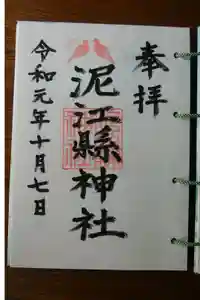 奉拝
泥江縣神社
令和元年十月七日